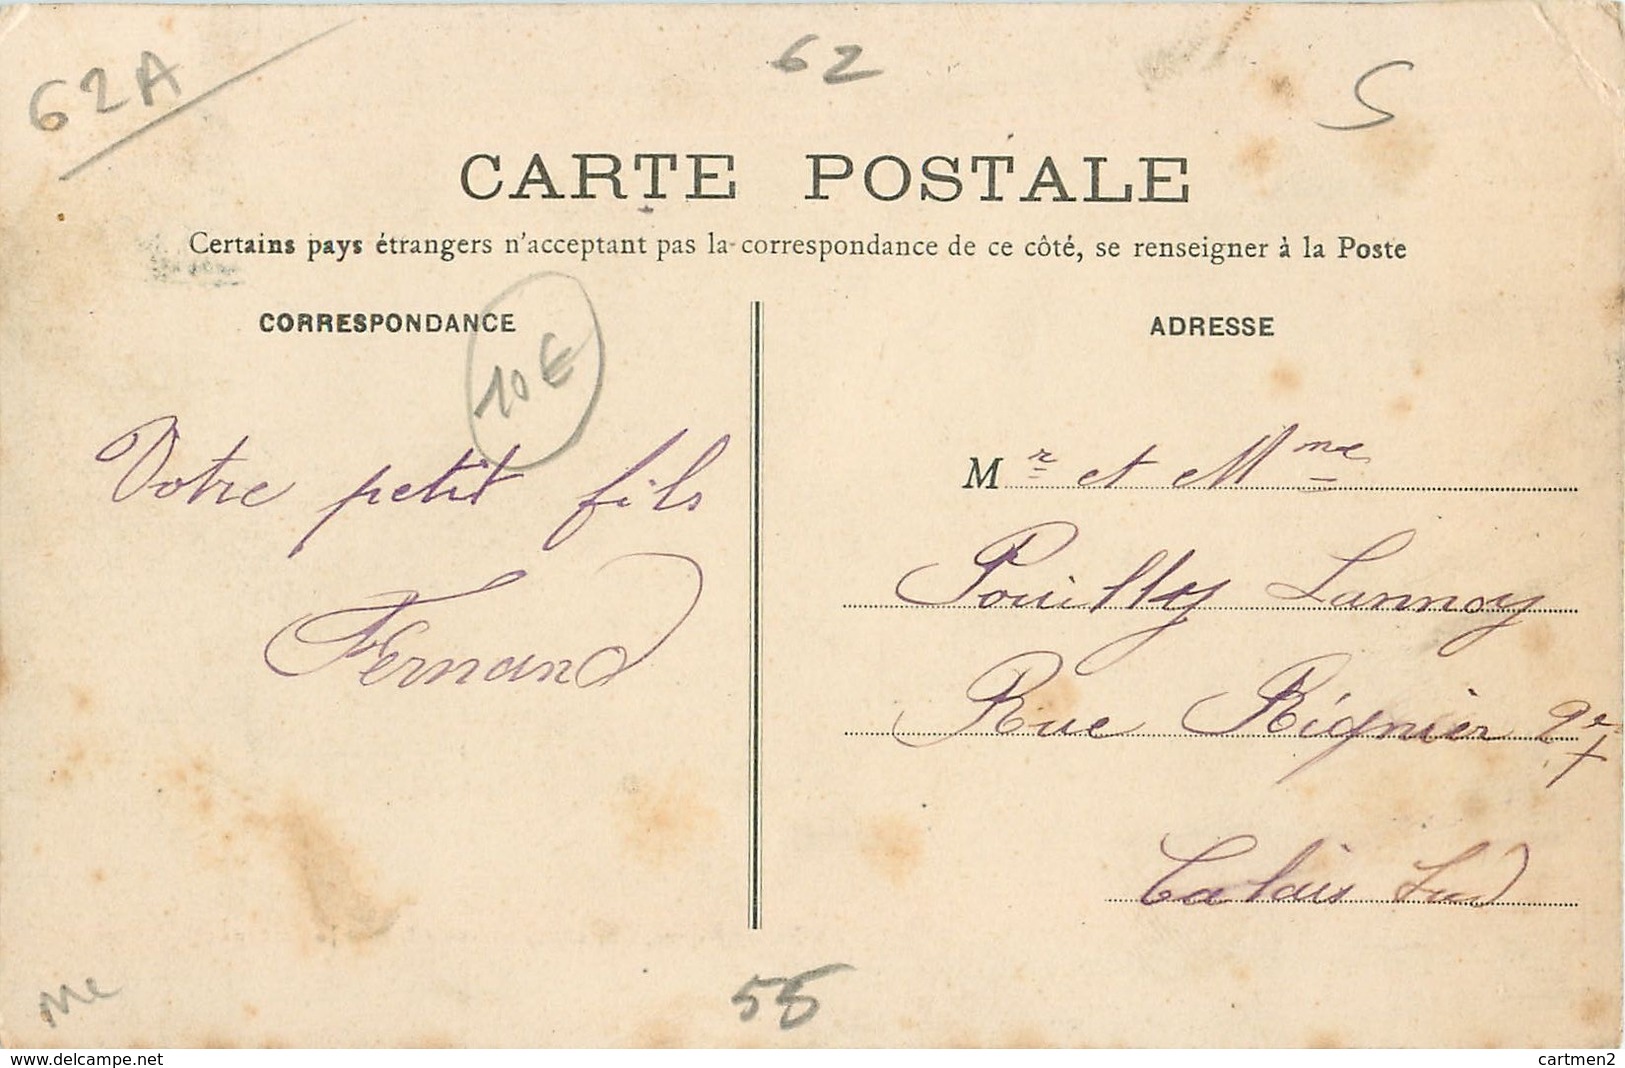 62A
62
S
CARTE POSTALE
Certains pays étrangers n'acceptant pas la correspondance de ce côté, se renseigner à la Poste
CORRESPONDANCE
10€
Votre petit fils
Fernand
ADRESSE
Mr et Mme
Pouilly Lannoy
Rue Régnier 2
Calais Sud
Me
58
www.delcampe.net
cartmen2